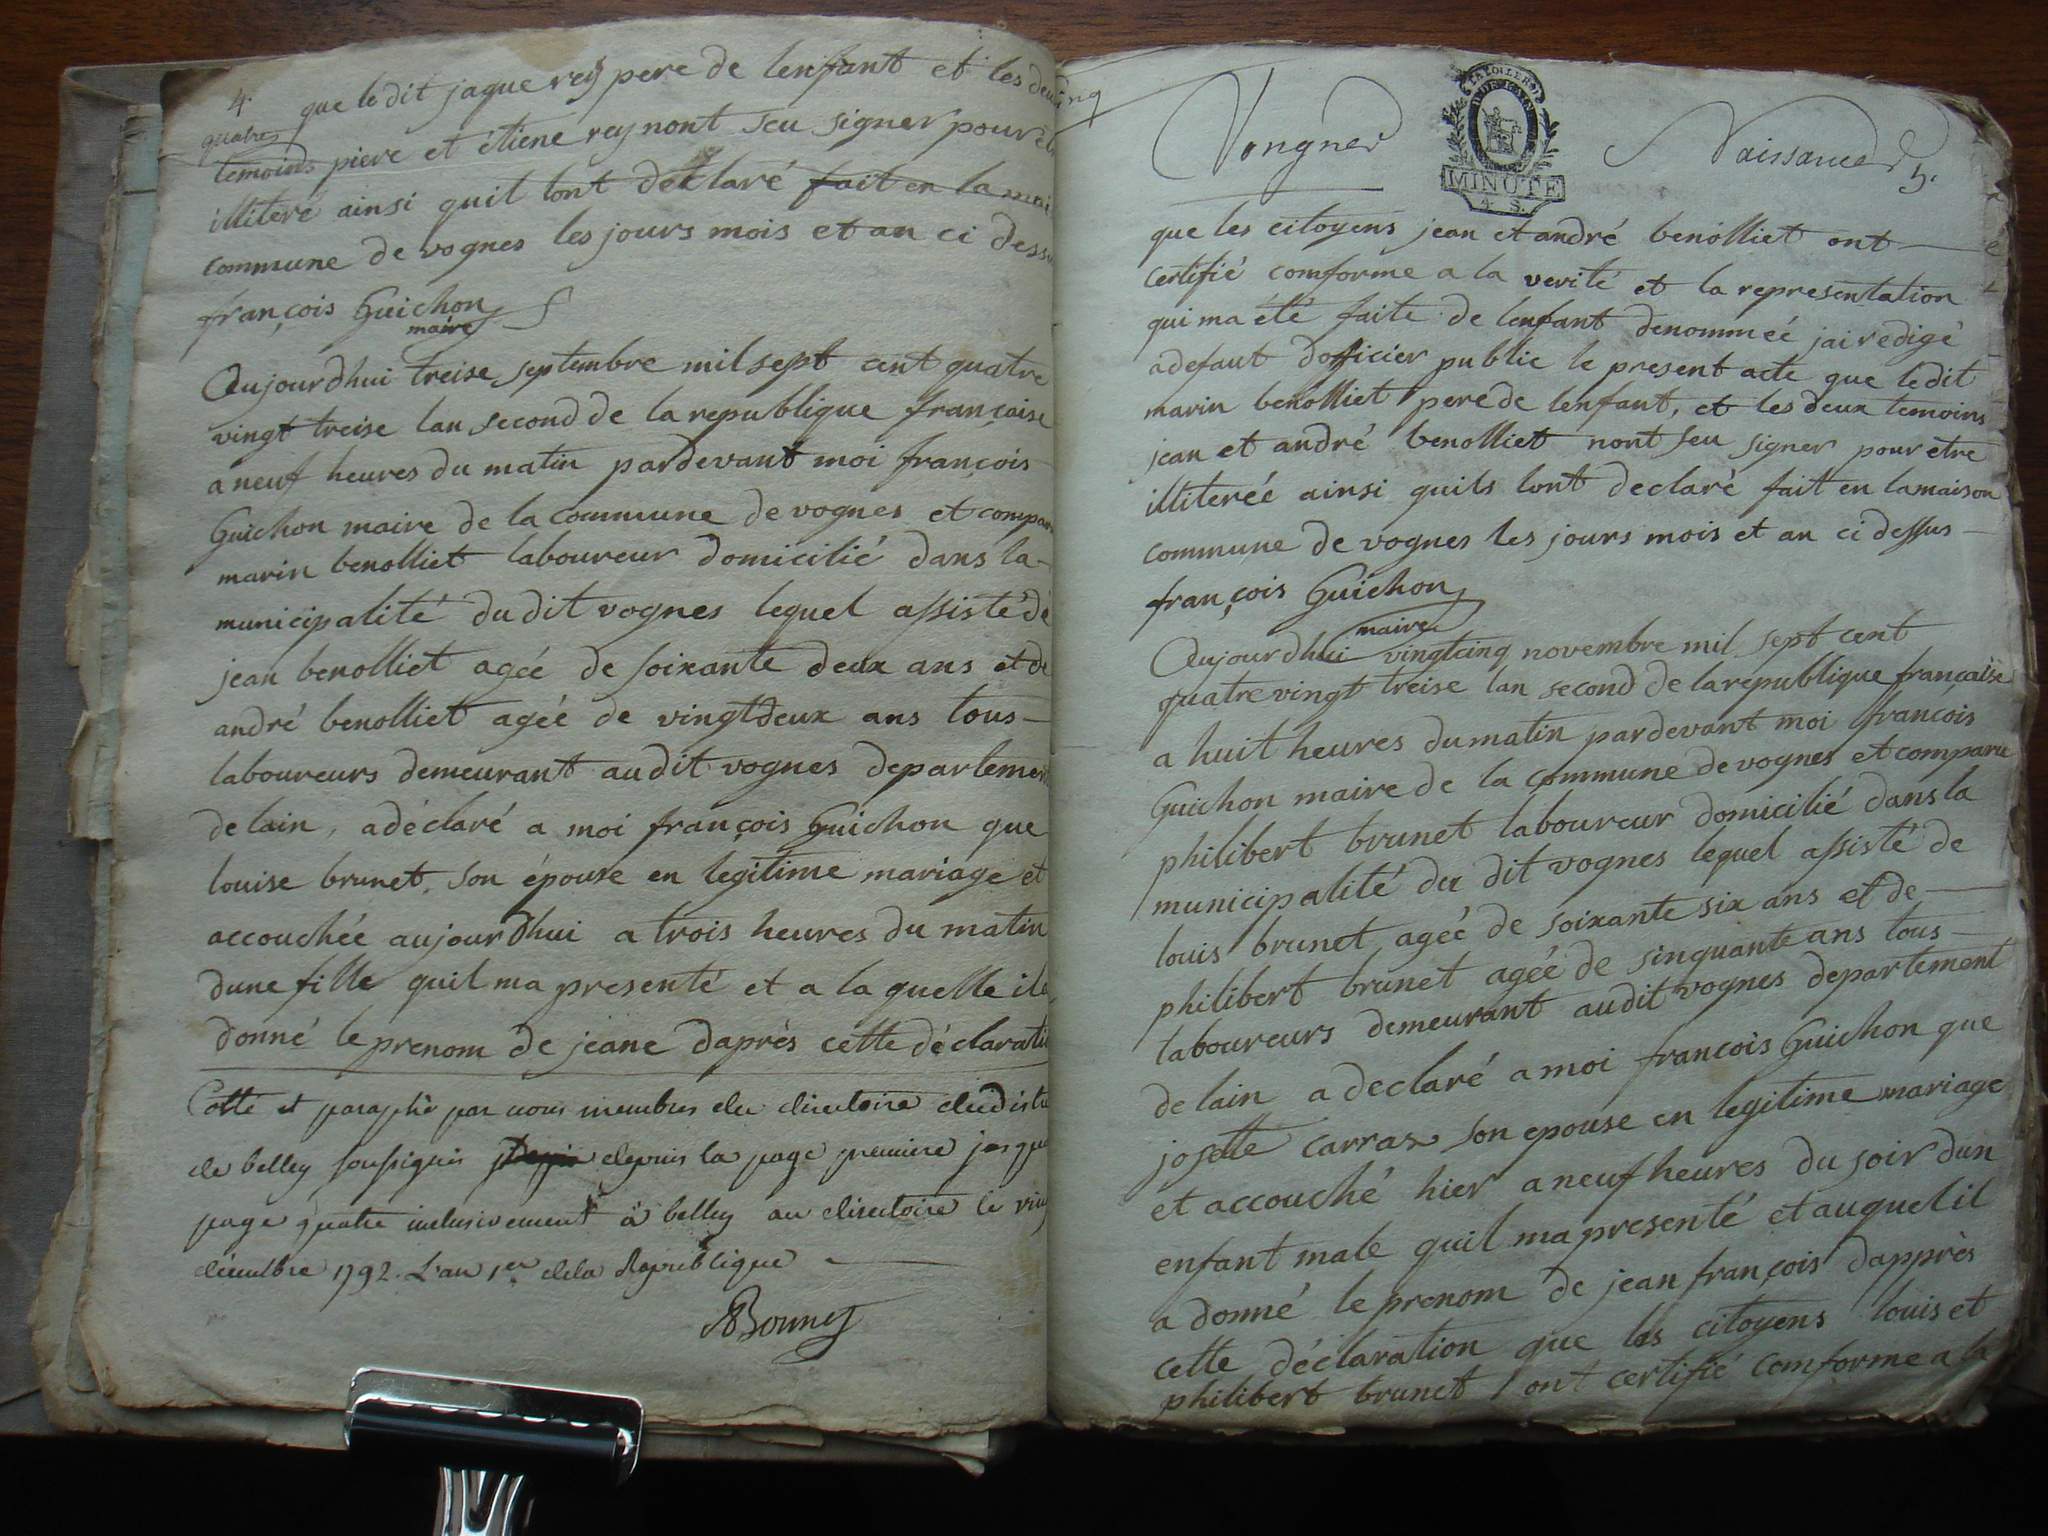 4.
quatre
que le dit jaque rey pere de lenfant et les deux
temoins piere et étiene rey nont seu signer pour
illiteré ainsi quil lont déclaré fait en la mai
commune de vognes les jours mois et an ci dessu
françois Guichon
maire
Aujourdhui treise septembre mil sept cent quatre
vingt treise lan second de la republique française
a neuf heures du matin pardevant moi françois
Guichon maire de la commune de vognes et compar
marin benolliet laboureur domicilié dans la
municipalité du dit vognes lequel assisté de
jean benolliet agée de soixante deux ans et de
andré benolliet agée de vingtdeux ans tous
laboureurs demeurant audit vognes departement
de lain, a déclaré a moi françois Guichon que
louise brunet, son épouse en legitime mariage et
accouchée aujourdhui a trois heures du matin
dune fille quil ma presenté et a la quelle il
donné le prenom de jeane daprès cette déclarati
Cotté et paraphé par nous membres du directoire du distr
de belley soussignés depuis la page premiere jusqua
page quatre inclusivement à belley au directoire le vin
décembre 1792. L'an 1er de la Republique
Vongnes
TIMBRE
MINUTE
4 S.
Naissances
5.
que les citoyens jean et andré benolliet ont
certifié comforme a la verité et la representation
qui ma été faite de lenfant denommeé jai redigé
a defaut doficier public le present acte que ledit
marin benolliet pere de lenfant, et les deux temoins
jean et andré benolliet nont seu signer pour etre
illitereé ainsi quils lont declaré fait en la maison
commune de vognes les jours mois et an ci dessus
françois Guichon
maire
Aujourdhui vingtcinq novembre mil sept cent
quatre vingt treise lan second de la republique française
a huit heures du matin pardevant moi françois
Guichon maire de la commune de vognes et comparu
philibert brunet laboureur domicilié dans la
municipalité du dit vognes lequel assisté de
louis brunet ageé de soixante six ans et de
philibert brunet ageé de sinquante ans tous
laboureurs demeurant audit vognes departement
de lain a declaré a moi françois Guichon que
josette carraz son epouse en legitime mariage
et accouché hier a neuf heures du soir dun
enfant male quil ma presenté et auquel il
a donné le prenom de jean françois dapprès
cette déclaration que les citoyens louis et
philibert brunet ont certifié comforme a la